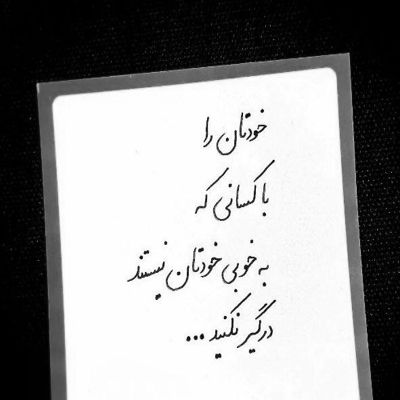 خودتان را
با کسانی که
به خوبی خودتان نیستند
درگیر نکنید ...